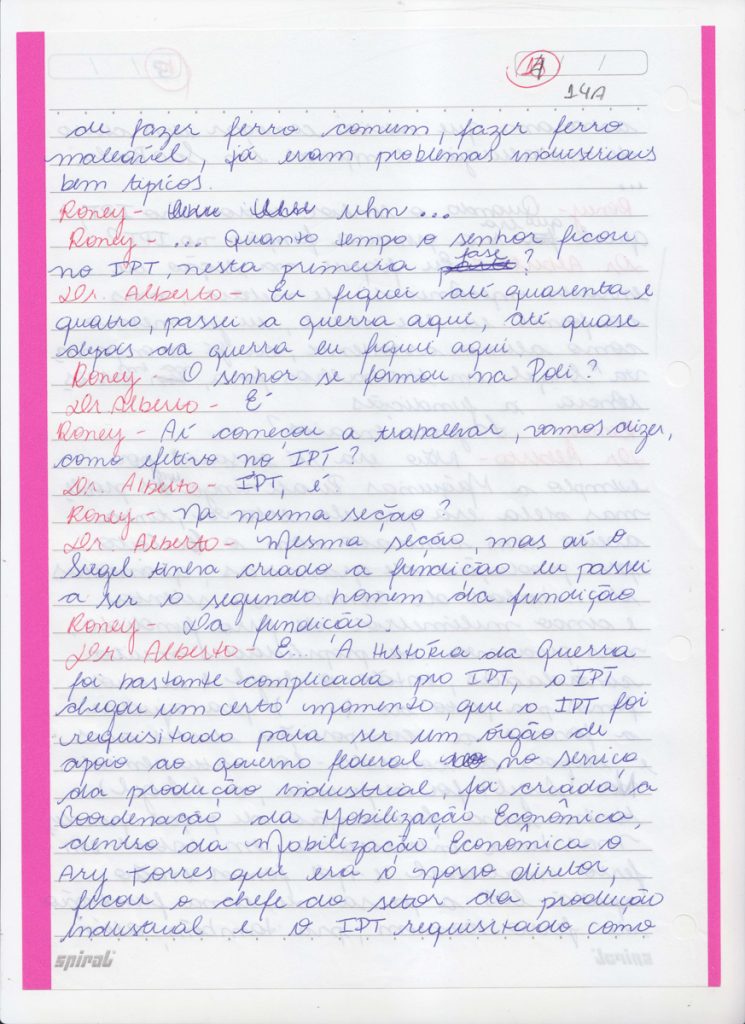 14
14A
de fazer ferro comum, fazer ferro
maleável, já eram problemas industriais
bem típicos.
Roney - uhn ...
Roney - ... Quanto tempo o senhor ficou
no IPT, nesta primeira fase ?
Dr. Alberto - Eu fiquei até quarenta e
quatro, passei a guerra aqui, até quase
depois da guerra eu fiquei aqui
Roney - O senhor se formou na Poli ?
Dr Alberto - É
Roney - Aí começou a trabalhar, vamos dizer,
como efetivo no IPT ?
Dr. Alberto - IPT, é
Roney - Na mesma seção ?
Dr. Alberto - Mesma seção, mas aí o
Siegel tinha criado a fundição eu passei
a ser o segundo homem da fundição
Roney - Da fundição.
Dr Alberto - É... A História da Guerra
foi bastante complicada pro IPT, o IPT
chegou um certo momento, que o IPT foi
requisitado para ser um órgão de
apoio ao governo federal no serviço
da produção industrial, foi criada, a
Coordenação da Mobilização Econômica,
dentro da Mobilização Econômica o
Ary Torres que era o nosso diretor,
ficou o chefe do setor da produção
industrial e o IPT requisitado como
spiral